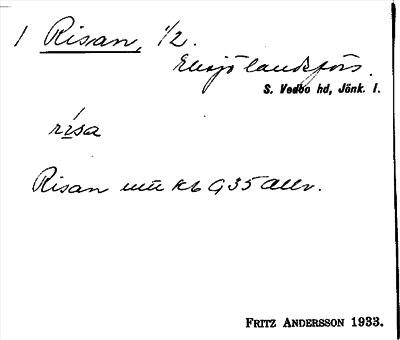 1 Risan, 1/2.
Eksjö landsförs.
S. Vedbo hd, Jönk. l.
rísa
Risan mtl Kb G 35 Allv.
FRITZ ANDERSSON 1933.